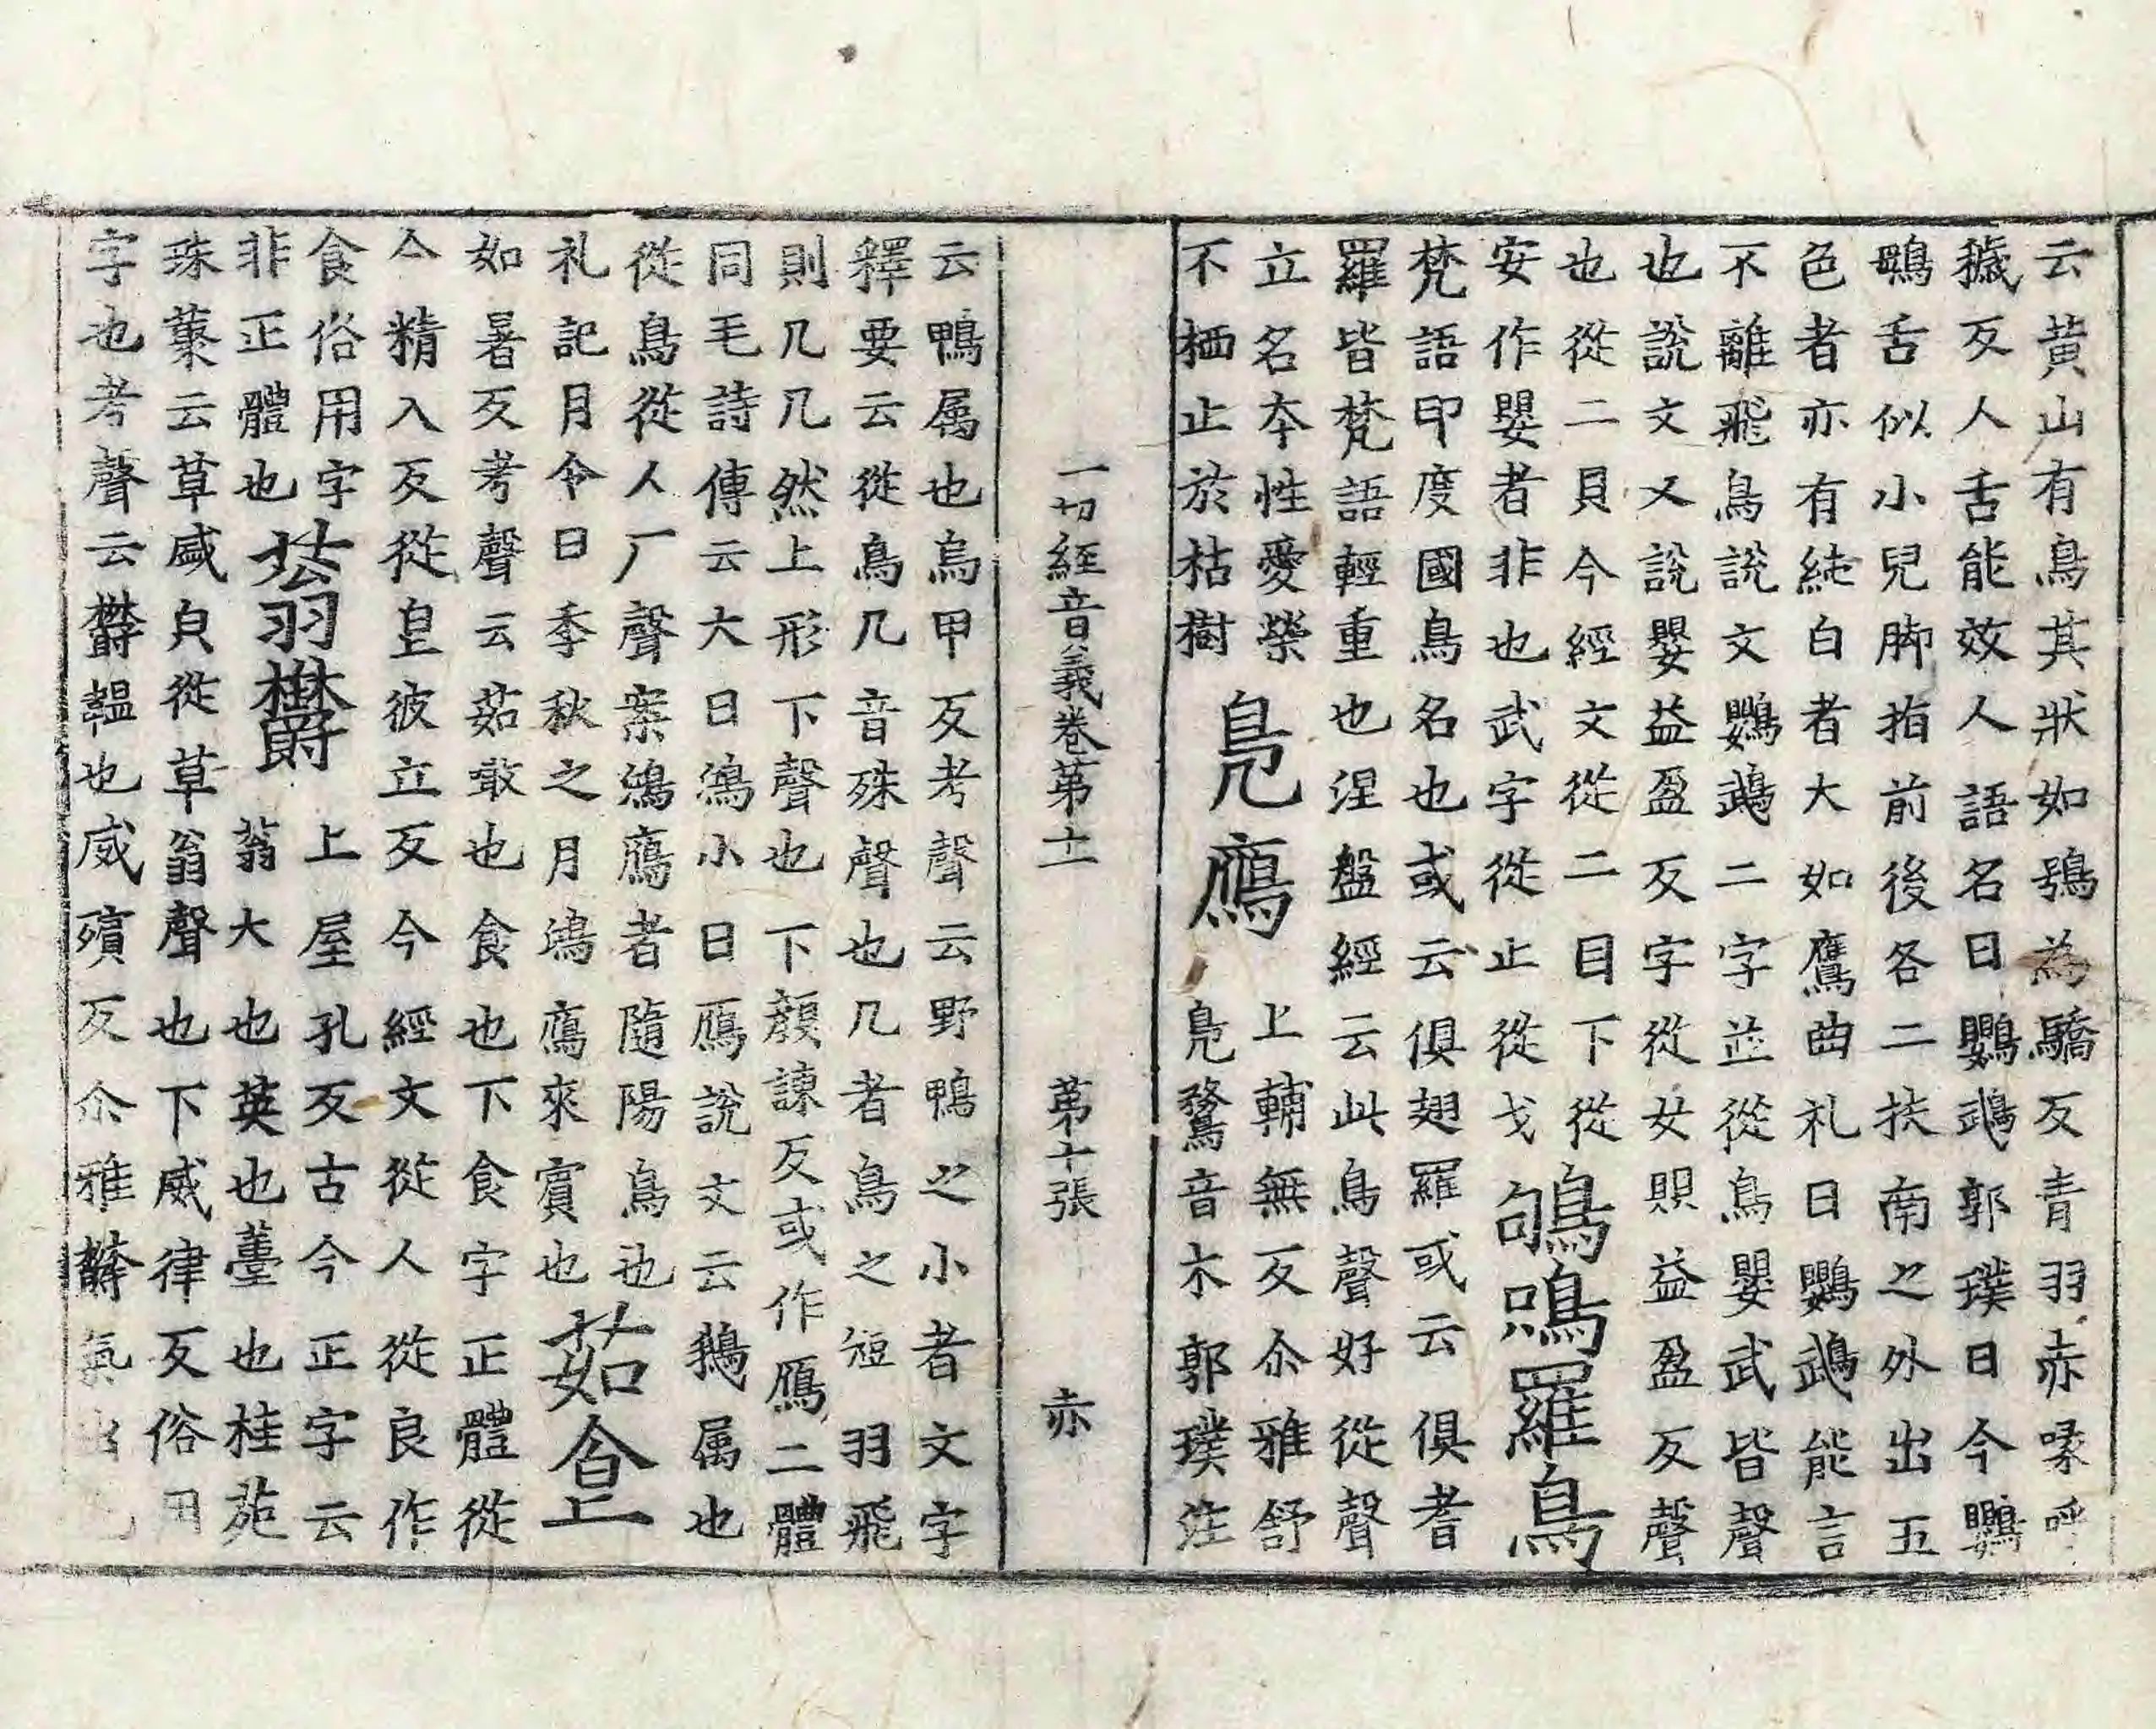 云黃山有鳥其狀如鴞為驕反青羽赤喙呼
穢反人舌能效人語名曰鸚䳇郭璞曰今鸚
䳇舌似小兒脚指前後各二扶南之外出五
色者亦有純白者大如鷹曲礼曰鸚䳇能言
不離飛鳥說文鸚䳇二字並從鳥嬰武皆聲
也說文又說嬰益盈反字從女賏益盈反聲
也從二貝今經文從二目下從
安作嬰者非也武字從止從戈 鴝鴞羅鳥
梵語印度國鳥名也或云俱翅羅或云俱耆
羅皆梵語輕重也涅盤經云此鳥聲好從聲
立名夲性愛榮
不栖止於枯樹 鳧鴈 上輔無反尒雅舒
鳧鶩音木郭璞注
一切經音義卷苐十一 苐十張 赤
云鴨属也烏甲反考聲云野鴨之小者文字
釋要云從鳥几音殊聲也几者鳥之短羽飛
則几几然上形下聲也下顏諫反或作鴈二體
同毛詩傳云大曰鴻小曰鴈說文云鵝属也
從鳥從人厂聲案鴻鴈者隨陽鳥也
礼記月令曰季秋之月鴻鴈來賓也 茹㑒
如暑反考聲云茹噉也食也下食字正體從
亼精入反從皀彼立反今經文從人從良作
食俗用字
非正體也 蓊欝 上屋孔反古今正字云
蓊大也英也薹也桂苑
珠藂云草盛皃從草翁聲也下威律反俗用
字也考聲云欝韞也威殞反尒雅欝氣出也